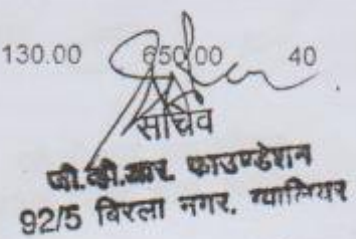 130.00 650.00 40
सचिव
जी.व्ही.आर. फाउण्डेशन
92/5 बिरला नगर, ग्वालियर